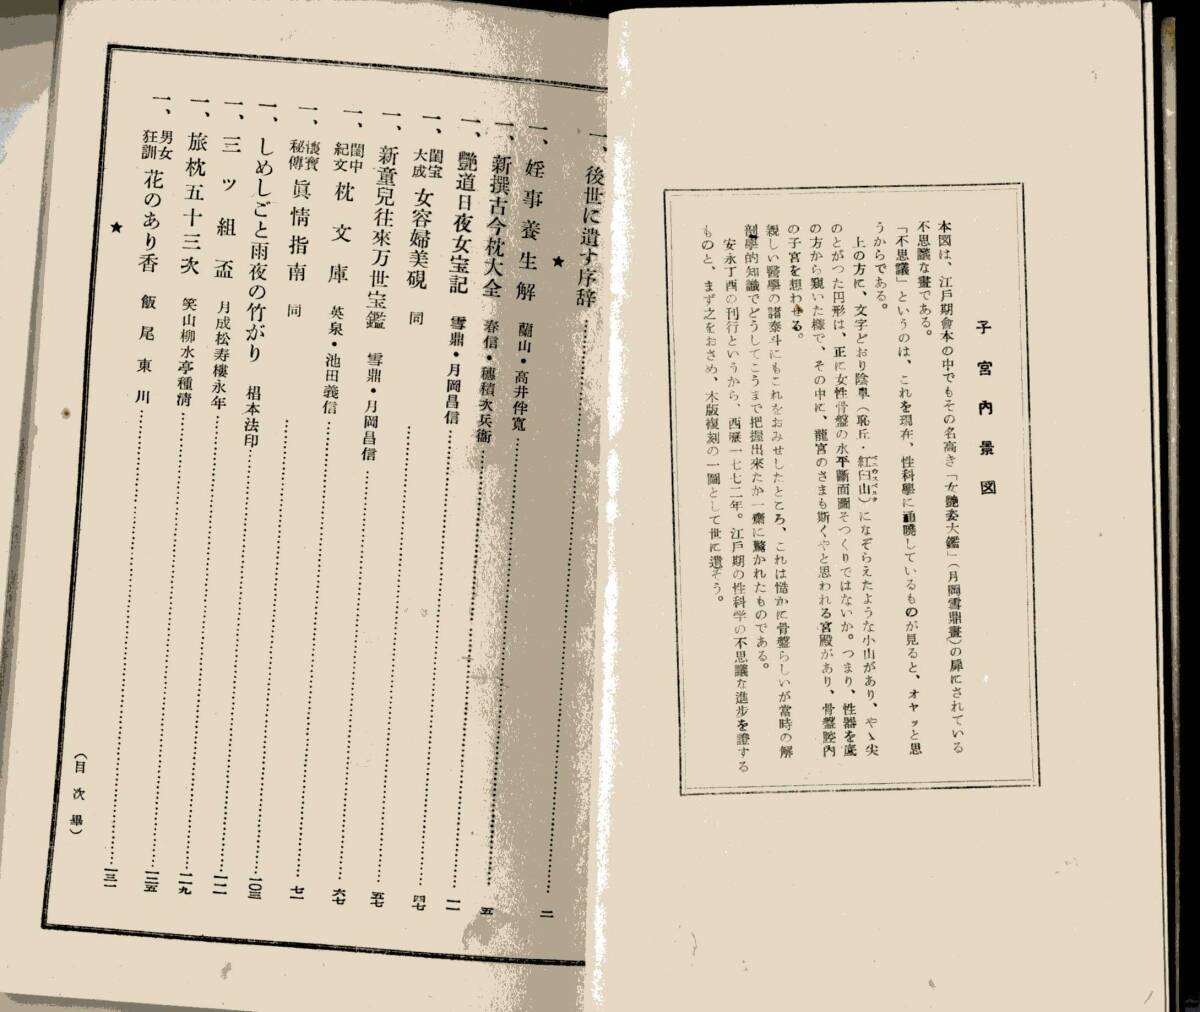 子宮內景図
本図は、江戶期會本の中でもその名高き「女艶姿大鑑」(月岡雪鼎畫)の扉にされている
不思議な畫である。
「不思議」というのは、これを現在、性科學に通曉しているものが見ると、オヤッと思
うからである。
上の方に、文字どおり陰阜(恥丘・紅臼山)になぞらえたような小山があり、やゝ尖
のとがつた円形は、正に女性骨盤の水平斷面圖そつくりではないか。つまり、性器を底
の方から覗いた樣で、その中に、龍宮のさまも斯くやと思われる宮殿があり、骨盤腔內
の子宮を想わせる。
親しい醫學の諸泰斗にもこれをおみせしたところ、これは慥かに骨盤らしいが當時の解
剖學的知識でどうしてこうまで把握出来たか一齋に驚かれたものである。
安永丁酉の刊行というから、西曆一七七二年。江戶期の性科学の不思議な進步を證する
ものと、まず之をおさめ、木版複刻の一圖として世に遺そう。
一、後世に遺す序辞
★
一、婬事養生解 蘭山・高井伴寬 二
一、新撰古今枕大全 春信・穗積次兵衞 五
一、艶道日夜女宝記 雪鼎・月岡昌信 一一
一、閨宝大成 女容婦美硯 同 四七
一、新童兒往來万世宝鑑 雪鼎・月岡昌信 五七
一、閨中紀文 枕文庫 英泉・池田義信 六七
一、懐寳秘傳 眞情指南 同 七一
一、しめしごと雨夜の竹がり 椙本法印 一〇三
一、三ッ組盃 月成松寿樓永年 一一二
一、旅枕五十三次 笑山柳水亭種淸 一一九
一、男女狂訓 花のあり香 飯尾東川 一二五
★ 一三一
(目次畢)